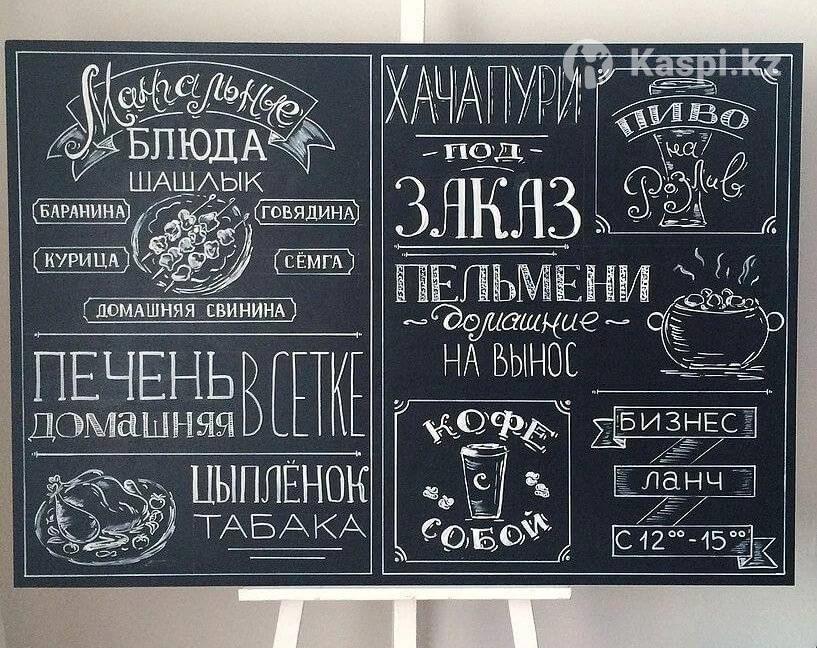 Мангальные
БЛЮДА
ШАШЛЫК
БАРАНИНА
ГОВЯДИНА
КУРИЦА
СЁМГА
ДОМАШНЯЯ СВИНИНА
ПЕЧЕНЬ
ДОМАШНЯЯ
В СЕТКЕ
ЦЫПЛЁНОК
ТАБАКА
ХАЧАПУРИ
- ПОД -
ЗАКАЗ
Kaspi.kz
ПИВО
на
Розлив
ПЕЛЬМЕНИ
~ домашние ~
НА ВЫНОС
КОФЕ
С
СОБОЙ
БИЗНЕС
ЛАНЧ
С 12⁰⁰-15⁰⁰